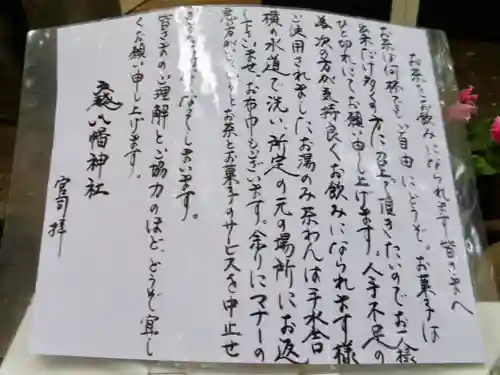 お茶をお飲みになられます皆さまへ
お茶は何杯でもご自由にどうぞ。お菓子は
出来だけ多くの方に召上って頂きたいのでお一人様
ひと切れにてお願い申し上げます。人手不足の
為次の方が気持良くお飲みになられます様
ご使用されましたお湯のみ茶わんは手水舎
横の水道で洗い、所定の元の場所にお返
し下さいませ。お布巾もございます。余りにマナーの
悪い方がいらっしゃるとお茶とお菓子のサービスを中止せ
ざるをえなくなってしまいます。
皆さまのご理解とご協力のほど、どうぞ宜し
くお願い申し上げます。
八幡神社
宮司 拝